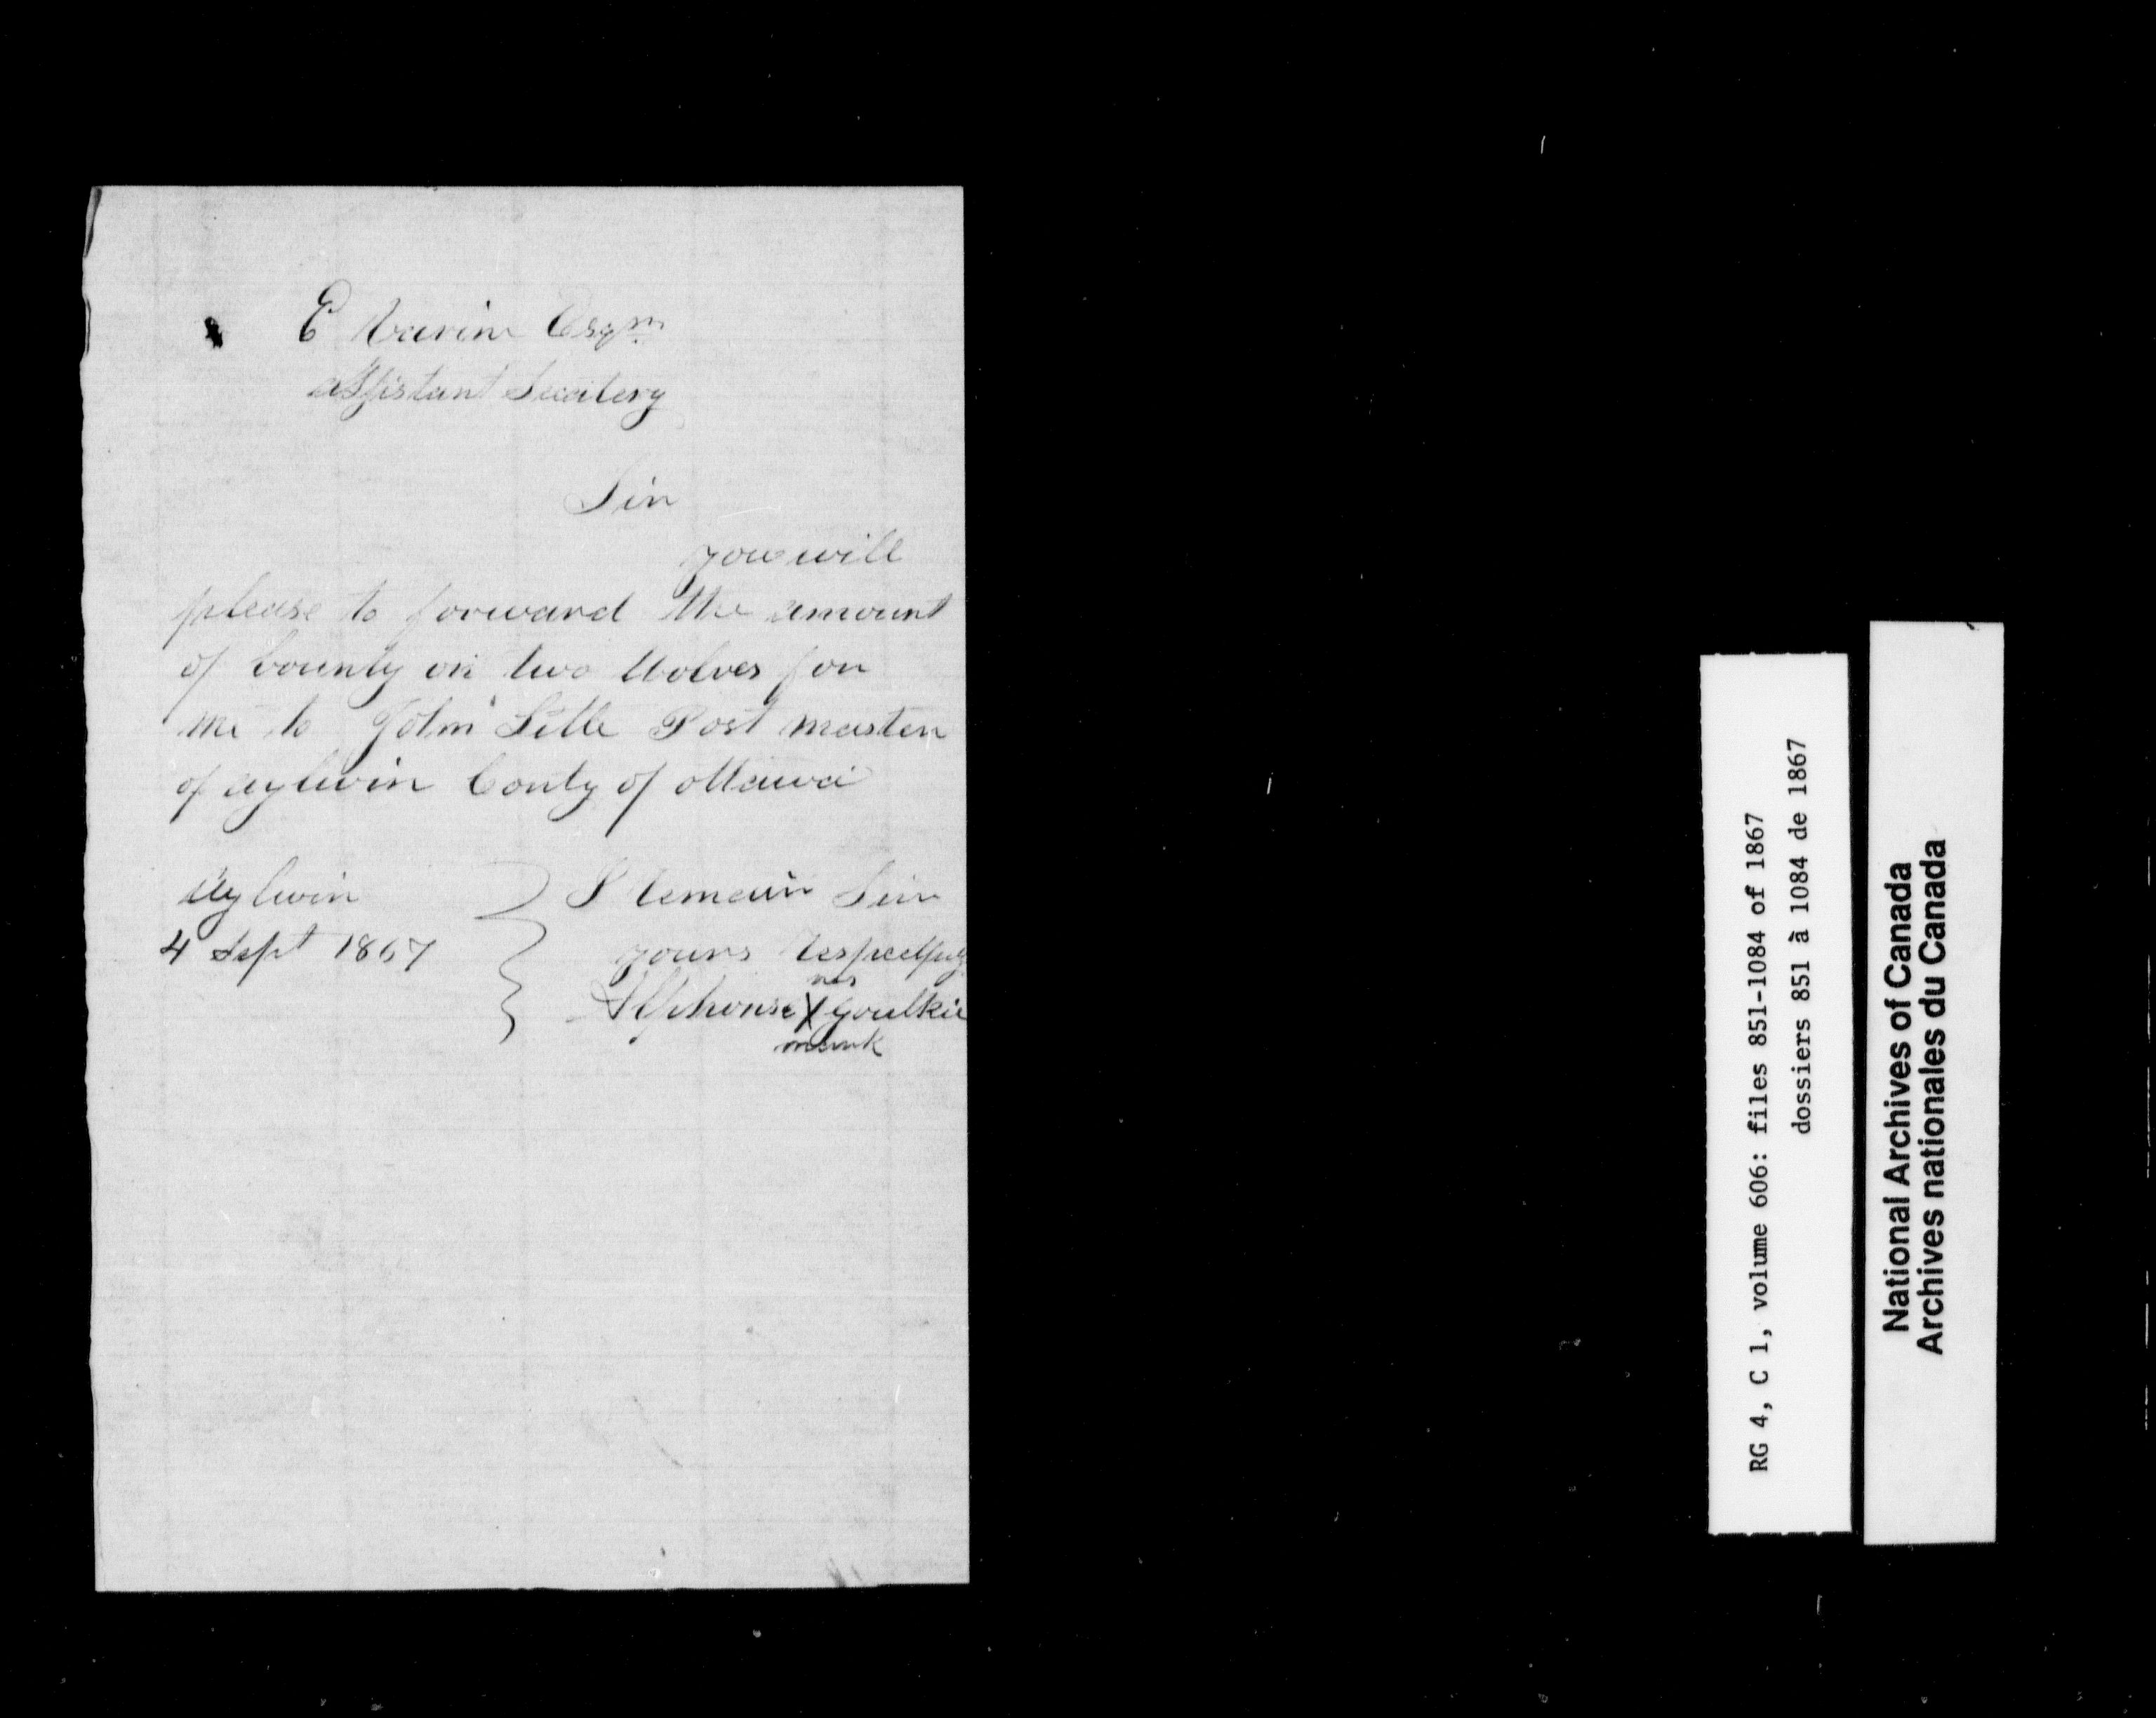 E Varin Esqr
assistant Secatery
Sir
you will
please to forward the amount
of bounty on two Wolves for
me to John Litle Post master
of aylwin Conty of ottawa
Aylwin
4 Sept 1867
I remain Sir
yours respectfuly
his
Alphonse X
mark
RG 4, C 1, volume 606: files 851-1084 of 1867
dossiers 851 à 1084 de 1867
National Archives of Canada
Archives nationales du Canada